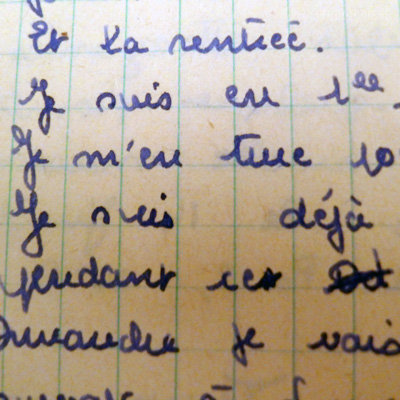 Et la rentrée.
Je suis en 1ee
Je m'en tire
Je suis déjà
pendant ces
Dimanche je vais